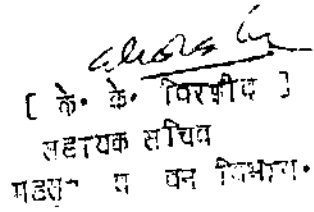 [ के. के. विरमीद ]
सहायक सचिव
महसूल व वन विभाग.